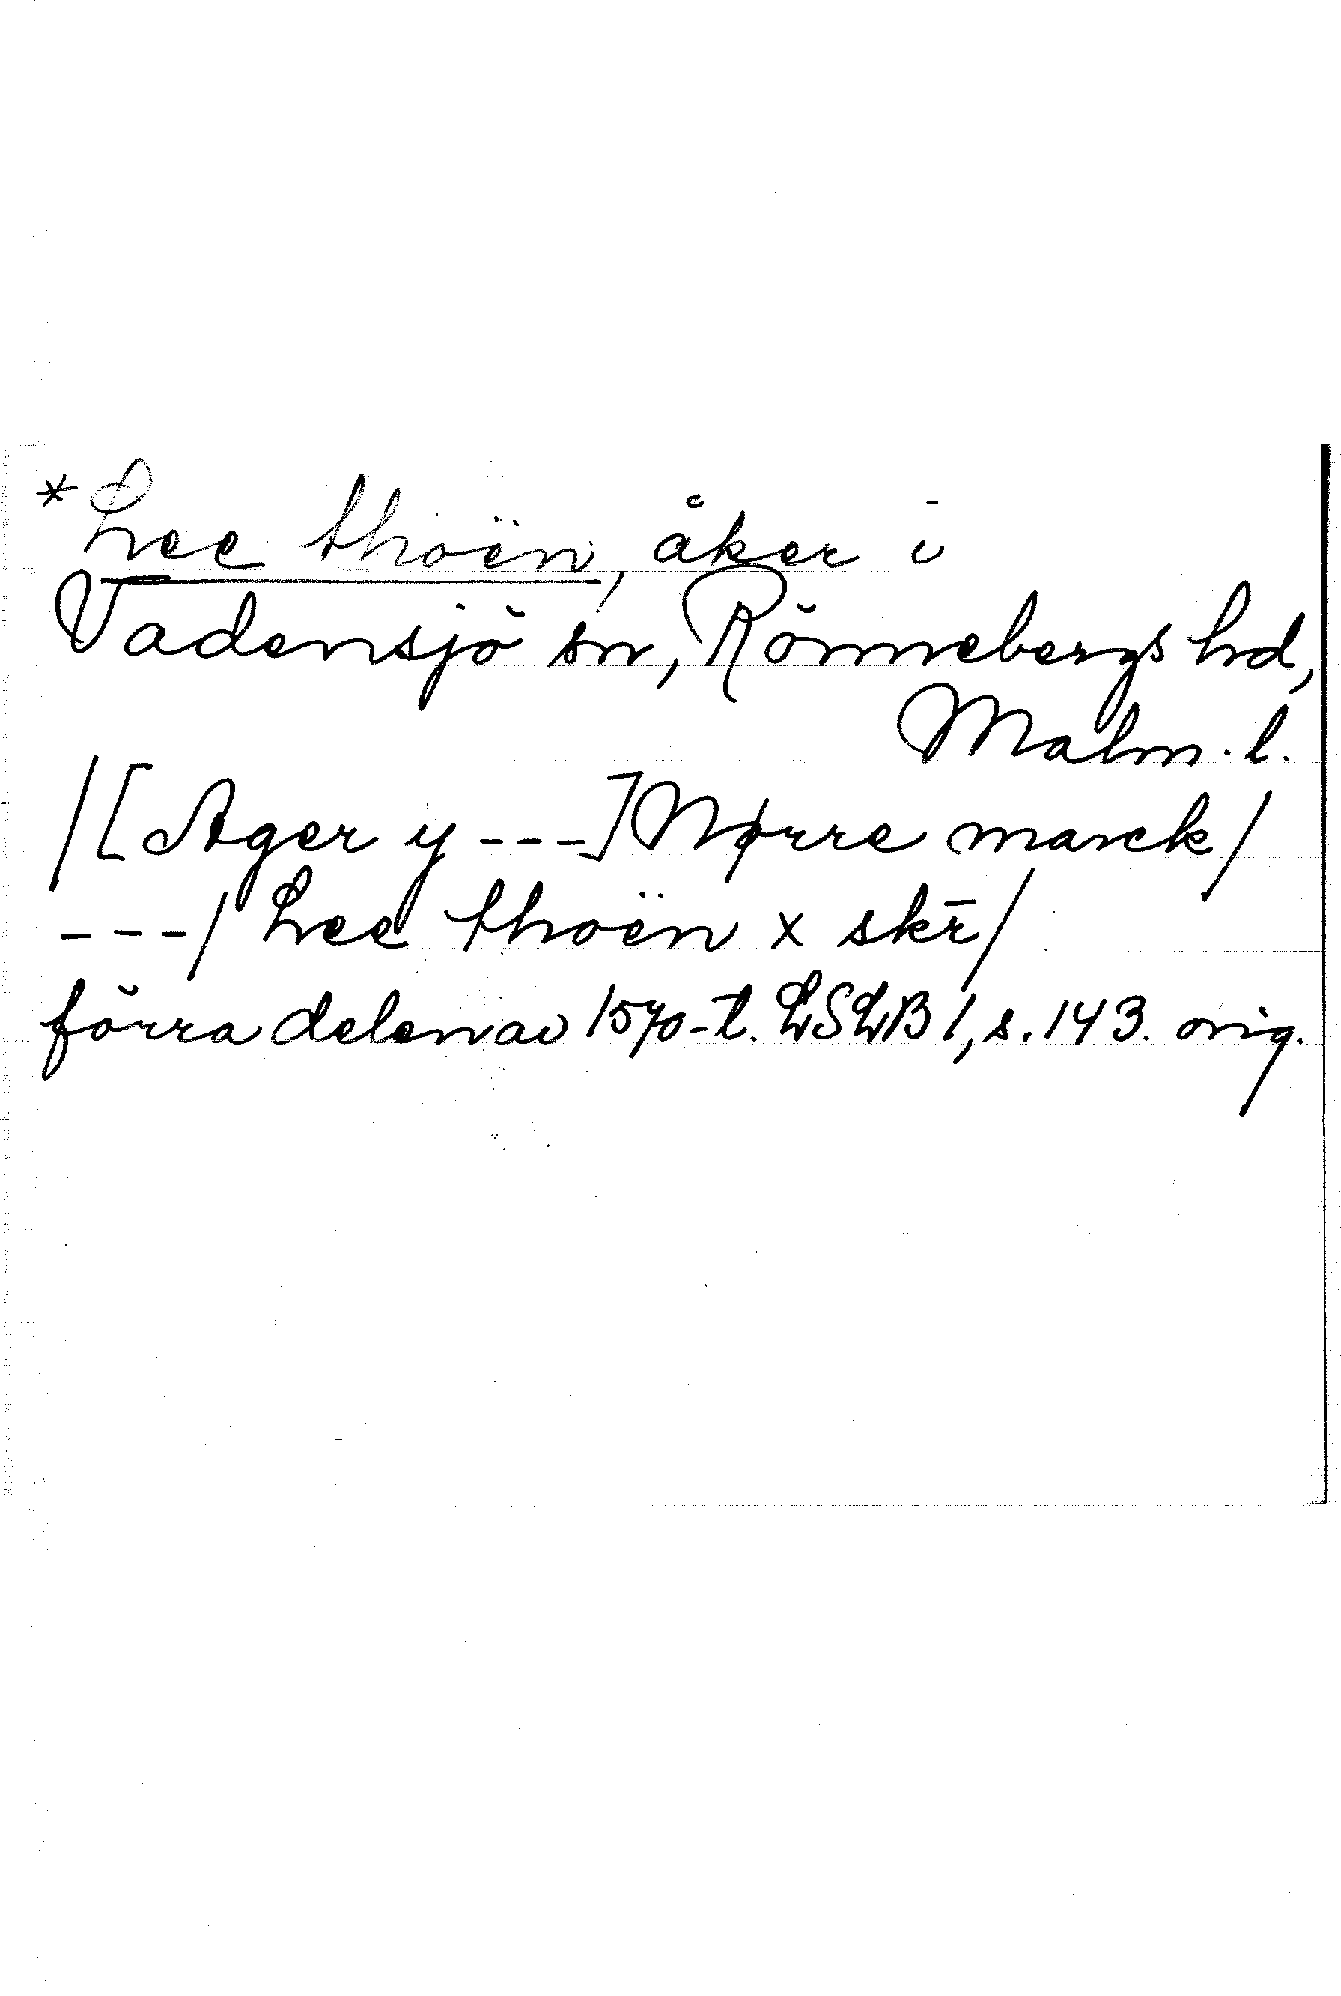 *Lee thoën, åker i
Vadensjö sn, Rönnebergs hd,
Malm. l.
/[Ager y ---] Nørre marck/
---/ Lee thoën x skr̄/
förra delen av 1570-t. LSLB 1, s. 143. orig.